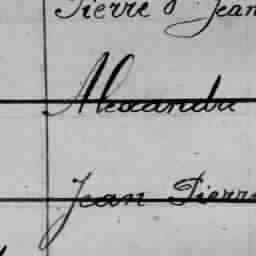 Pierre Jean
Alexandre
Jean Pierre